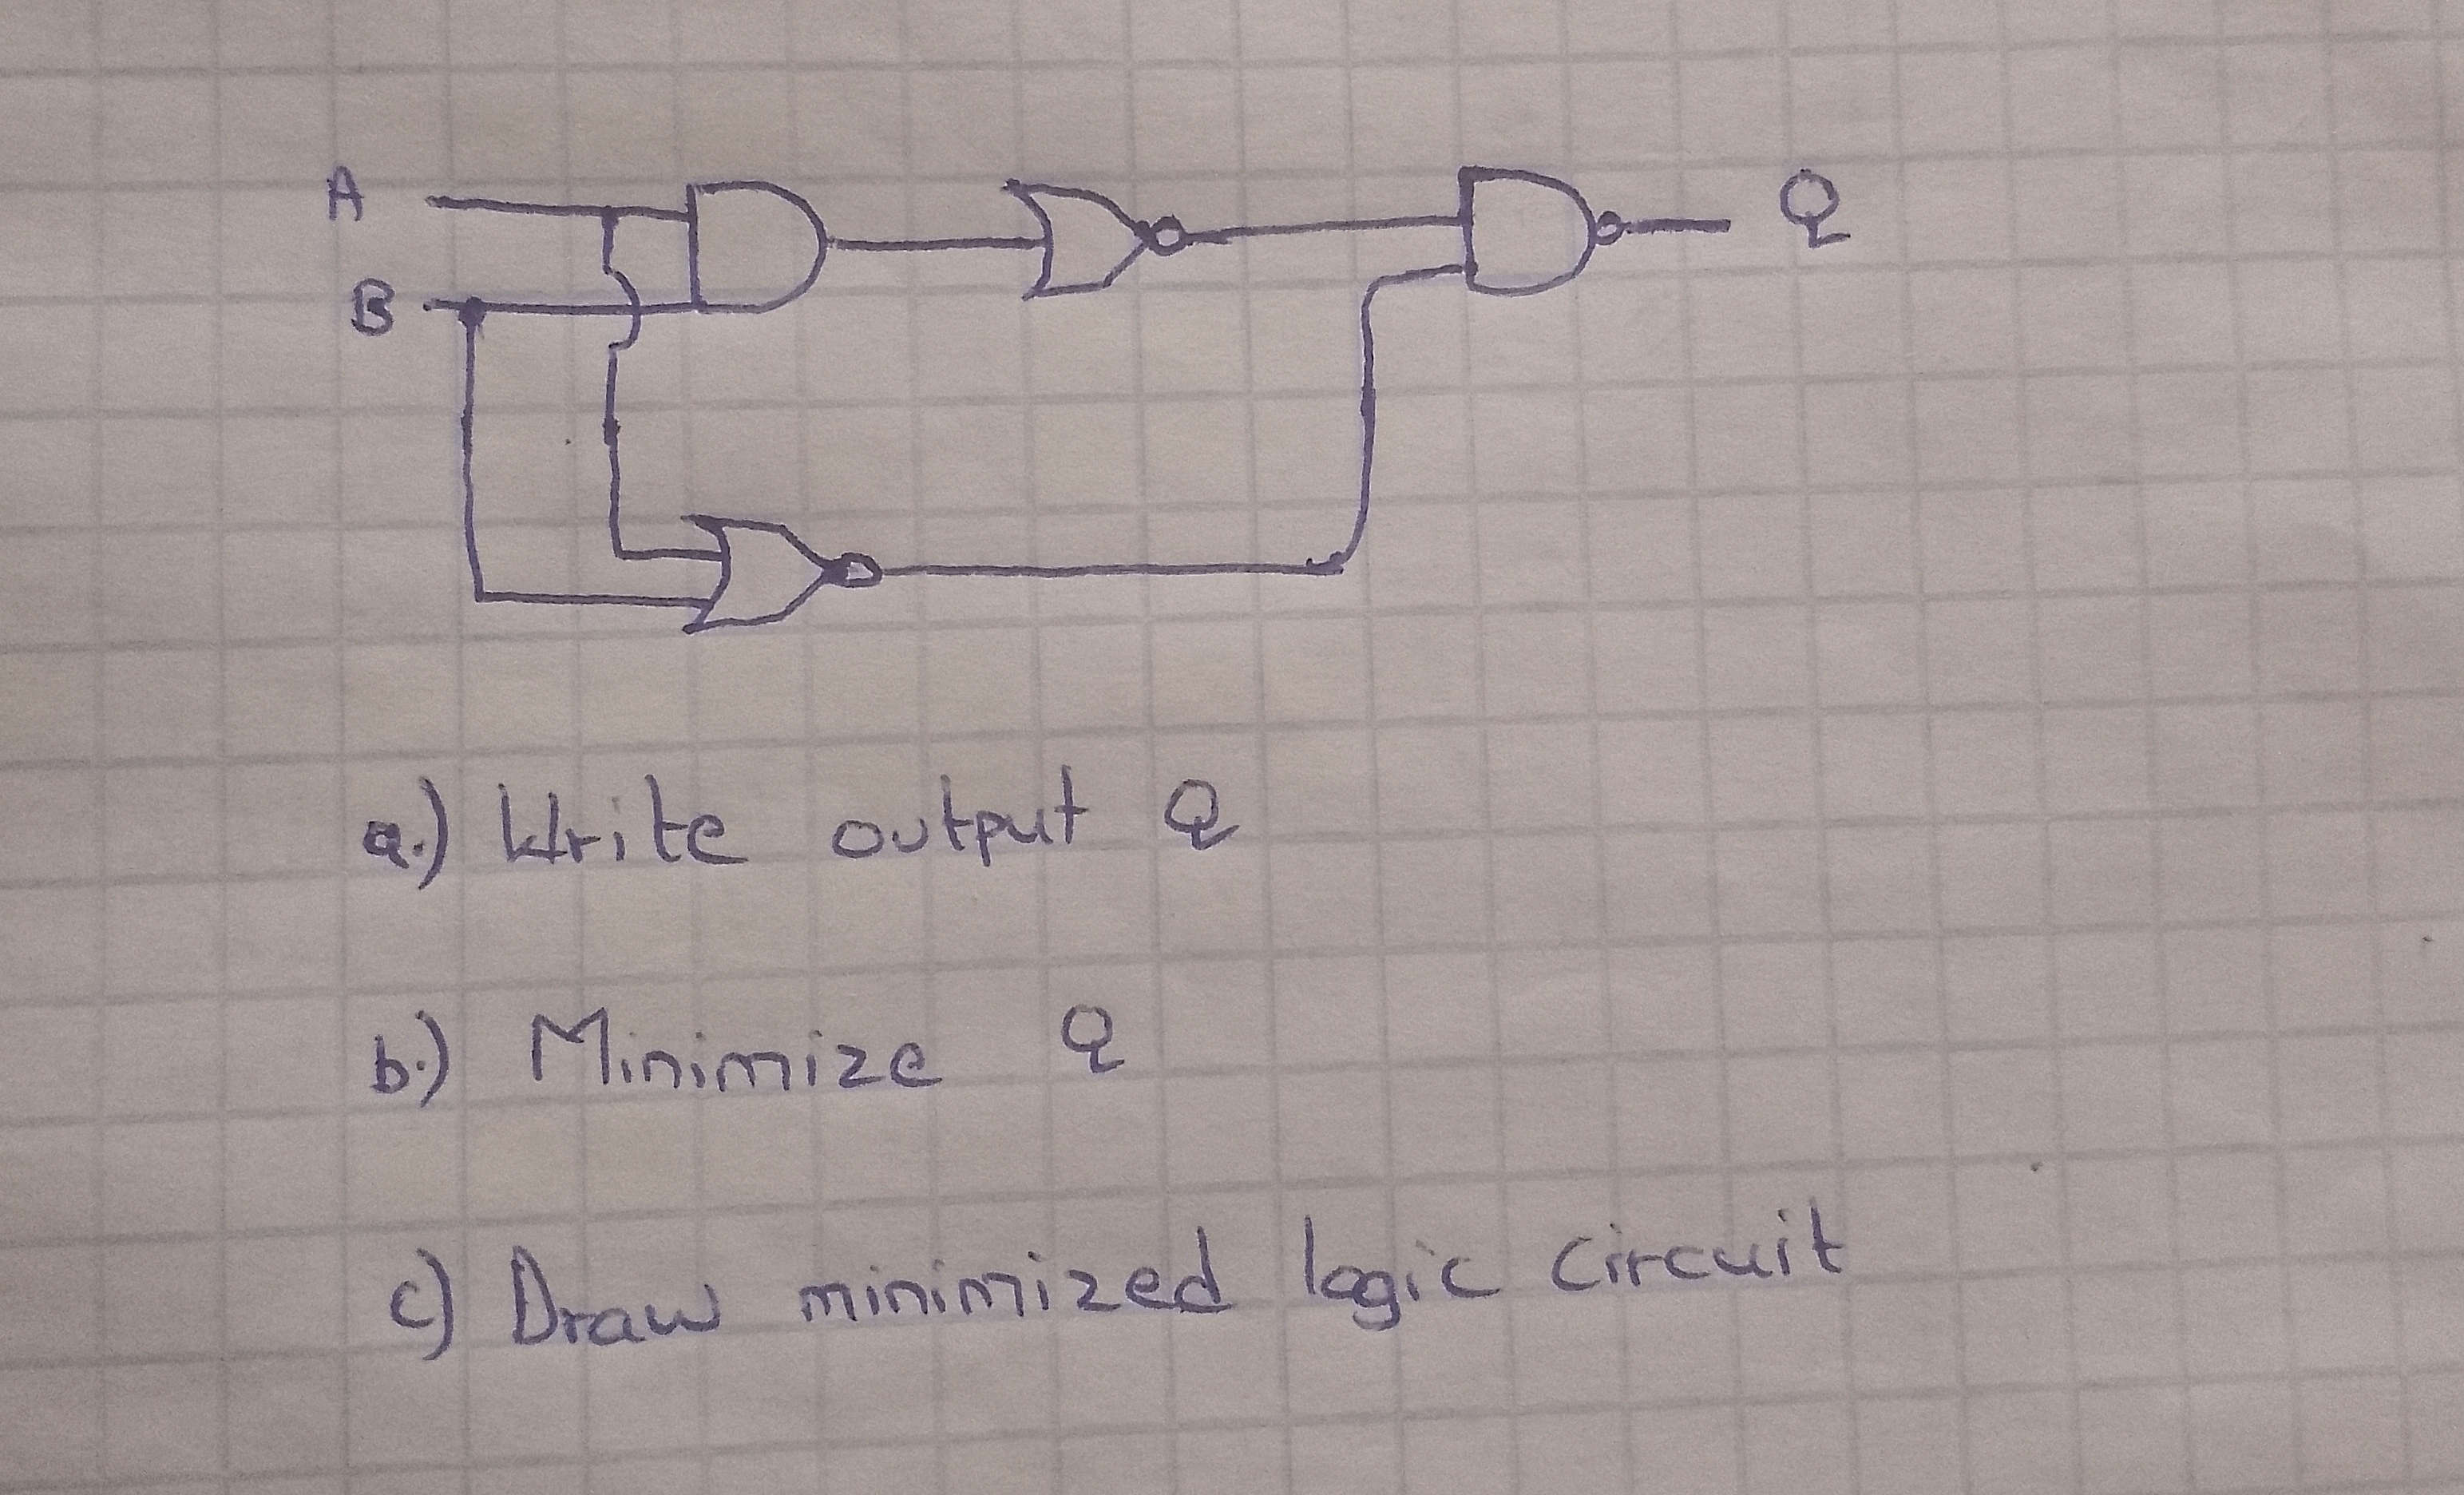 A
Q
B
a.) Write output Q
b.) Minimize Q
c) Draw minimized logic circuit